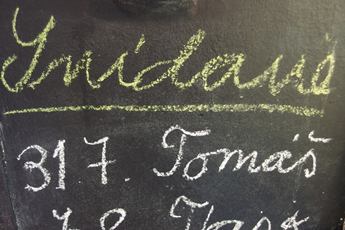 Snídaně
317. Tomáš